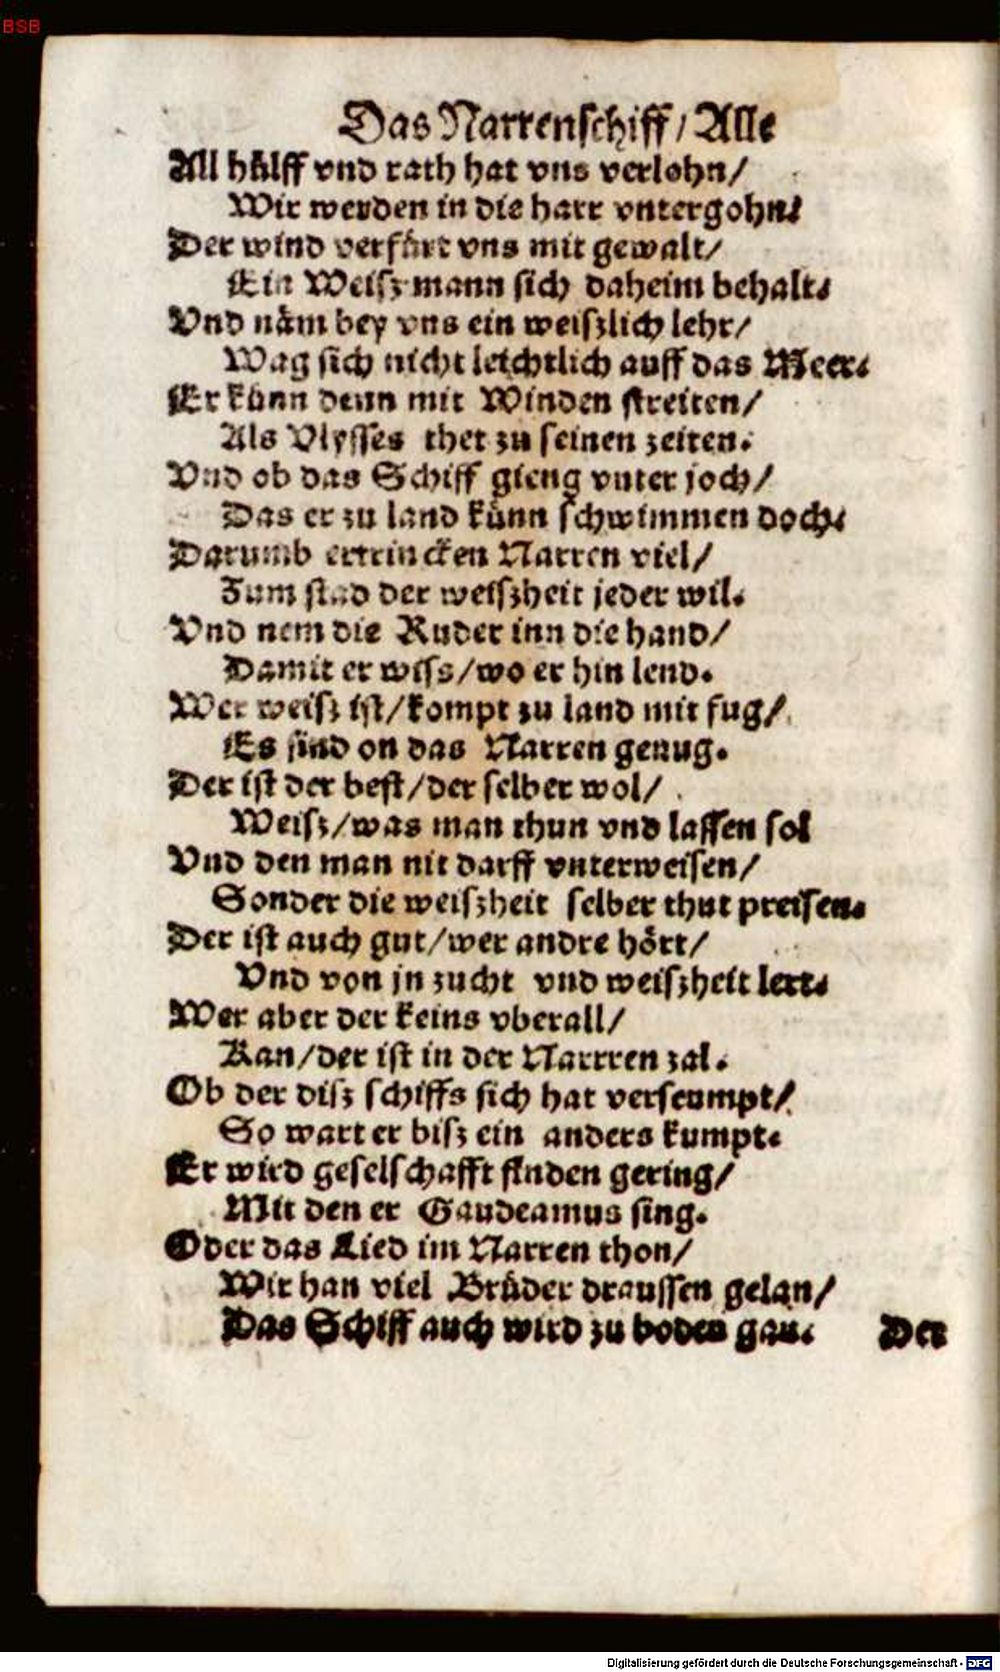 BSB
Das Narrenschiff / Alle
All hülff vnd rath hat vns verlohn /
Wir werden in die harr vntergohn.
Der wind verfürt vns mit gewalt /
Ein Weisz mann sich daheim behalt.
Vnd näm bey vns ein weiszlich lehr /
Wag sich nicht leichtlich auff das Meer.
Er künn denn mit Winden streiten /
Als Vlysses thet zu seinen zeiten.
Vnd ob das Schiff gieng vnter joch /
Das er zu land künn schwimmen doch.
Darumb ertrincken Narren viel /
Zum stad der weiszheit jeder wil.
Vnd nem die Ruder inn die hand /
Damit er wiss / wo er hin lend.
Wer weisz ist / kompt zu land mit fug /
Es sind on das Narren genug.
Der ist der best / der selber wol /
Weisz / was man thun vnd lassen sol
Vnd den man nit darff vnterweisen /
Sonder die weiszheit selber thut preisen.
Der ist auch gut / wer andre hört /
Vnd von jn zucht vnd weiszheit lert.
Wer aber der keins vberall /
Kan / der ist in der Narrren zal.
Ob der disz schiffs sich hat verseumpt /
So wart er bisz ein anders kumpt.
Er wird geselschafft finden gering /
Mit den er Gaudeamus sing.
Oder das Lied im Narren thon /
Wir han viel Brüder draussen gelan /
Das Schiff auch wird zu boden gan. Der
Digitalisierung gefördert durch die Deutsche Forschungsgemeinschaft - DFG